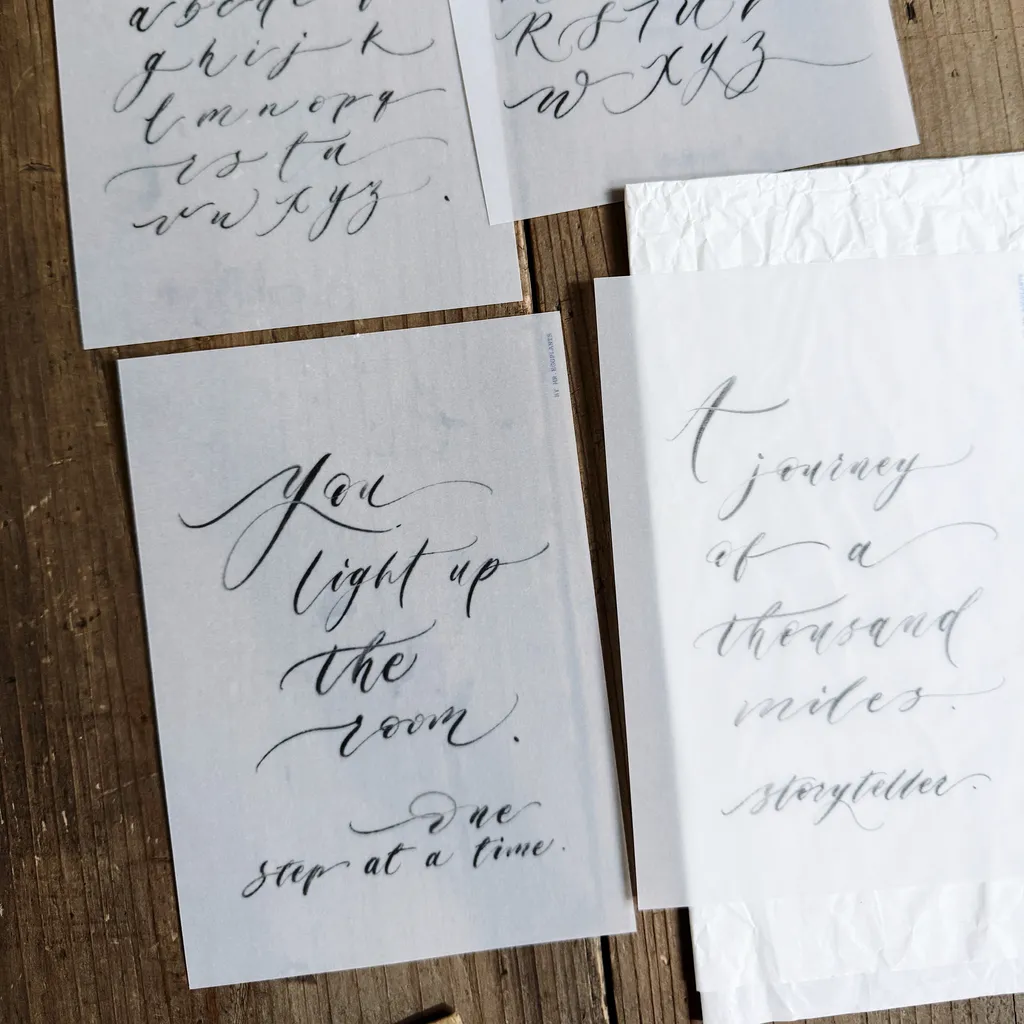 a b c d e f
g h i j k
l m n o p q
r s t u
v w x y z .
R S T U V
W X Y Z
You
light up
the
room.
One
step at a time.
A
journey
of a
thousand
miles.
storyteller.